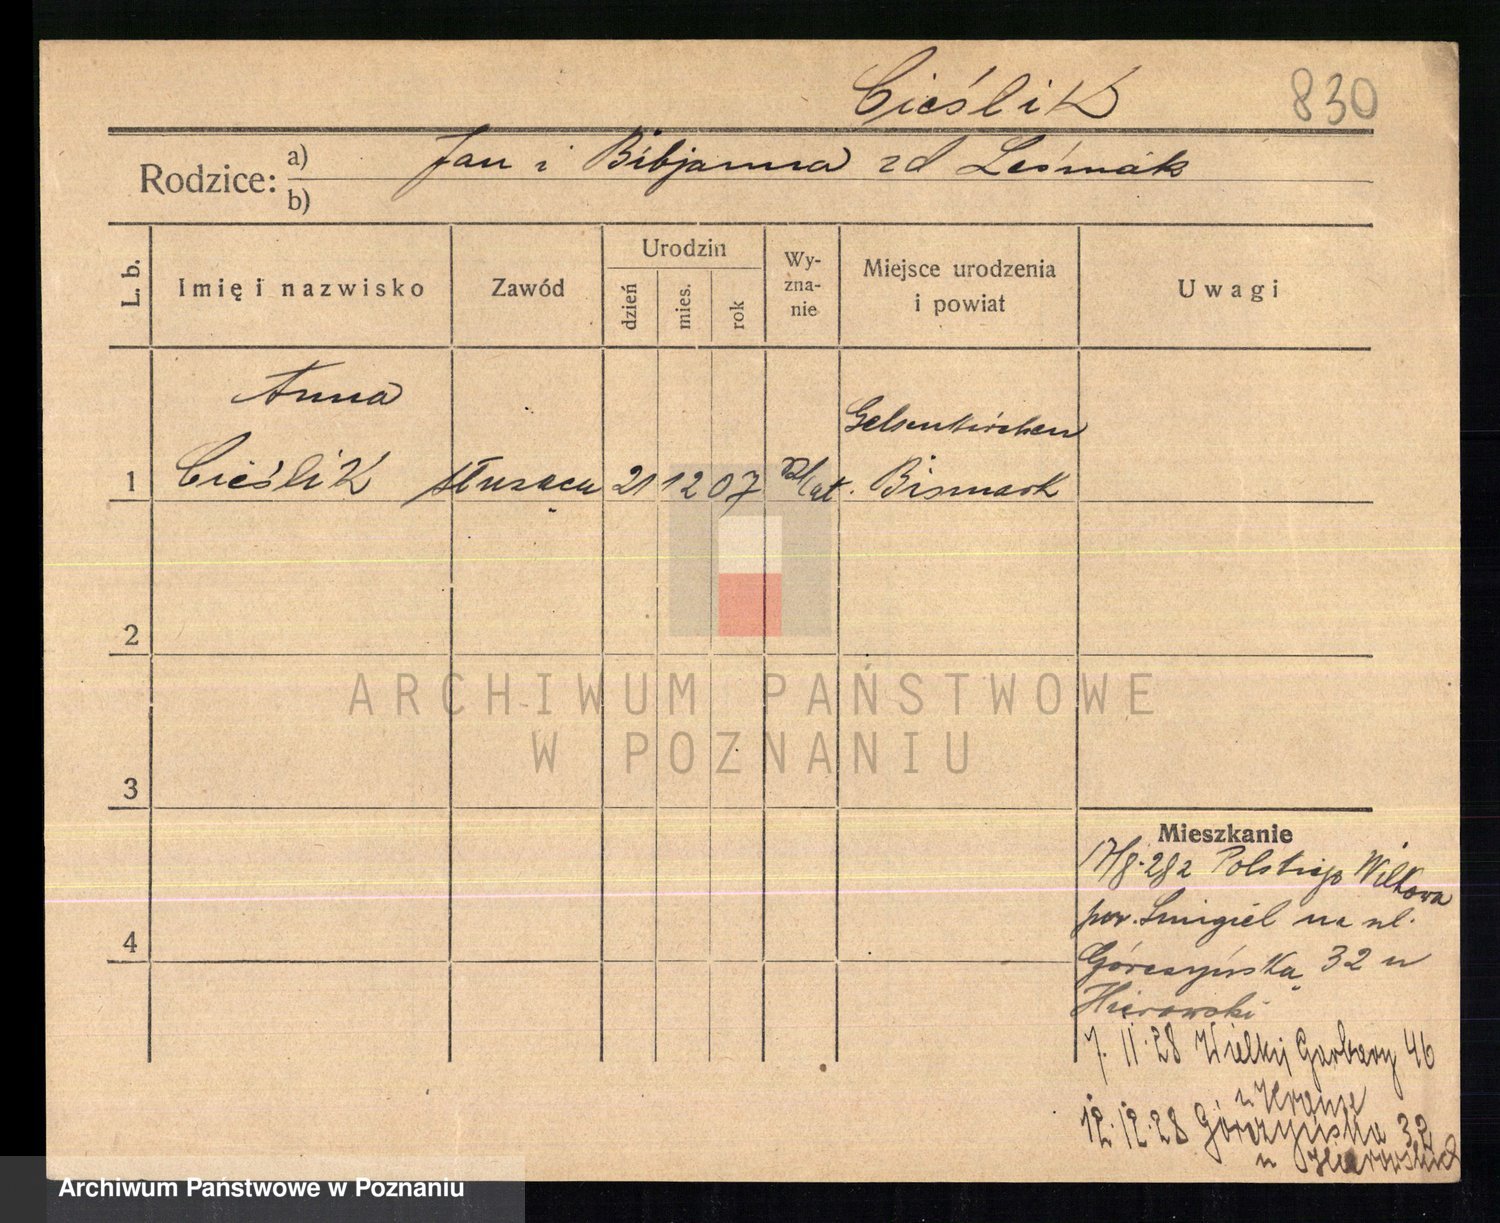 Cieślik
830
Rodzice:
a) Jan i Bibjanna zd Leśniak
b)
L. b.
Imię i nazwisko
Zawód
Urodzin
dzień
mies.
rok
Wy-
zna-
nie
Miejsce urodzenia
i powiat
Uwagi
Anna
Gelsenkirchen
1 Cieślik służąca 21 12 07 kat. Bismark
2
3
4
Mieszkanie
17/8.28 z Polskiego Wilkowa
pow. Śmigiel na ul.
Górczyńską 32 u
Hierowski
7. 11. 28 Wielkij Garbary 46
u
12. 12. 28 Górczyńska 32
u Hierowskich
ARCHIWUM PAŃSTWOWE
W POZNANIU
Archiwum Państwowe w Poznaniu